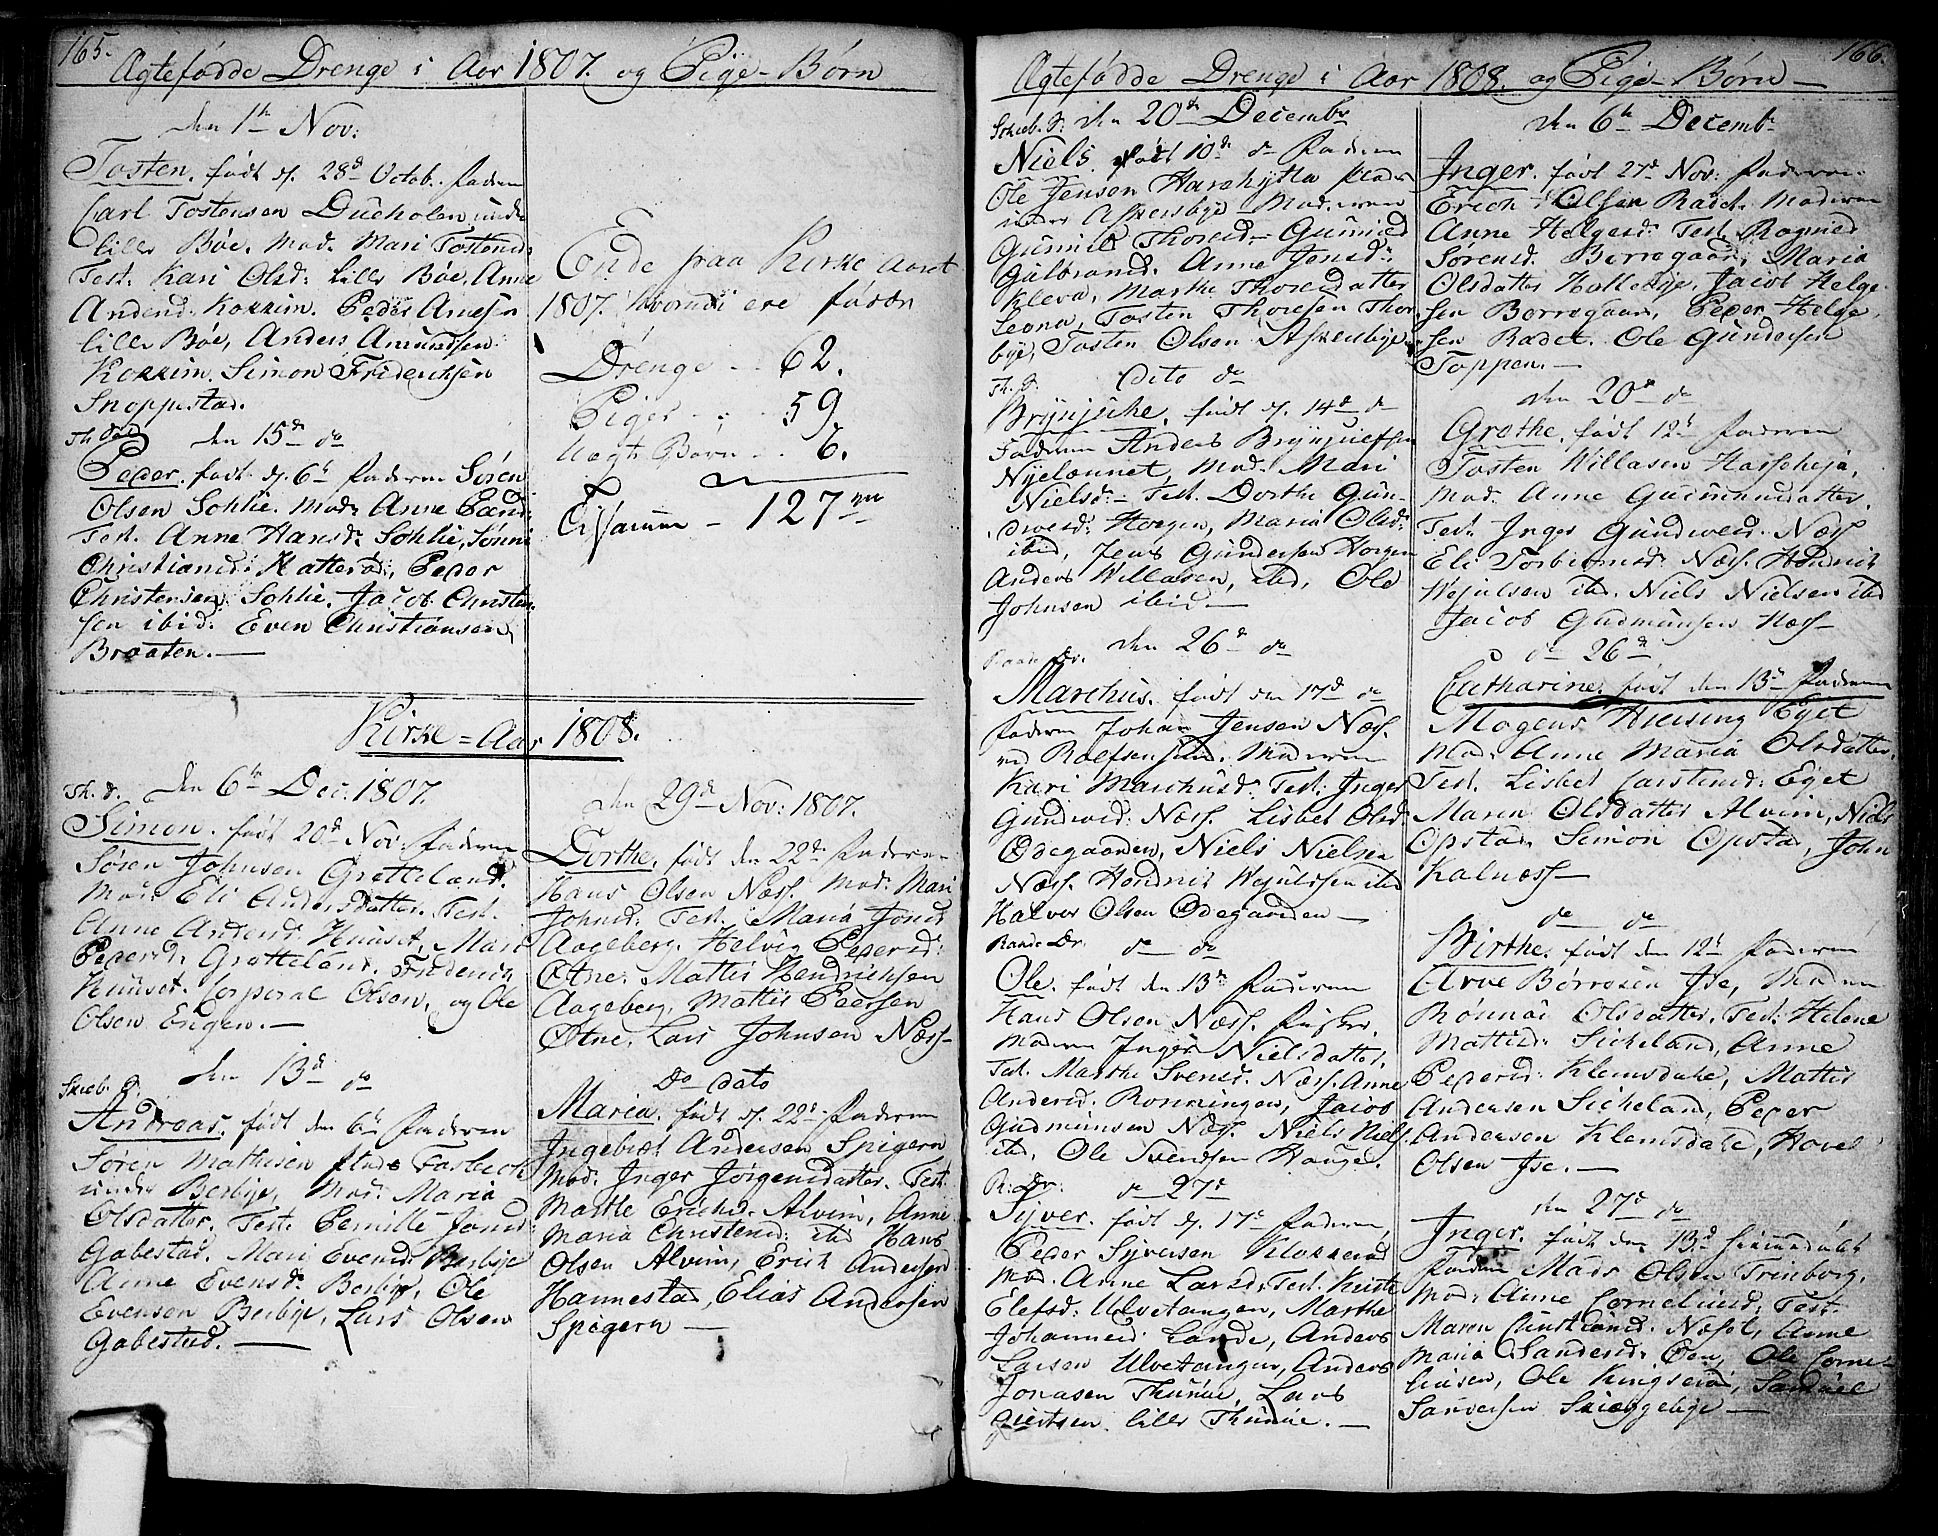 165.
Agtefødde Drenge i Aar 1807. og Pige-Børn
den 1te Nov:
Tosten. født d. 28d Octob. Faderen
Carl Tostensen Dueholen under
lille Bøe. Mod. Mari Tostensd
Test. Kari Olsd: lille Bøe, Anne
Andersd. Kokkim. Peder Arnesen
lille Bøe, Anders Amundsen
Kokkim. Simon Friderichsen
Snoppestad.
den 15de do
Peder. født d. 6te Faderen Søren
Olsen Sohlie. Mod: Anne
Test. Anne Hansd: Sohlie,
Christiansd: Katterød, Peder
Christensen Sohlie. Jacob Christen-
sen ibid: Even Christiansen
Braaten.—
Ende fraa Kirke Aaret
1807. hvorudi ere fødde
Drenge - - 62.
Piger - - - 59
Uægte Børn - - 6.
Tilsamm - 127
Kirke=Aar 1808.
Th. d. den 6te Dec. 1807.
Simon. født 20d Nov: Faderen
Søren Johnsen Grotteland.
Mod: Eli Andersdatter. Test.
Anne Andersd. Huuset, Mari
Pedersd: Grotteland. Friderich
Huuset. Corporal Olsen, og Ole
Olsen Engen.—
Skieb. d. den 13d do
Andreas. født den 6te Faderen
Søren Mathisen
under Berbye, Mod: Maria
Olsdatter. Test. Pernille Jonsd
Gabestad. Mari Evensd: Berbye
Anne Evensd: Berbye, Ole
Evensen Berbye, Lars Olsen
Gabestad.—
den 29d Nov: 1807.
Dorthe. født den 22de Faderen
Hans Olsen Næss. Mod: Mari
Johnsd: Test. Maria Jonsd
Aageberg. Helvig Pedersd:
Otne. Mattis Hendrichsen
Aageberg, Mattis Peersen
Otne, Lars Johnsen Næss-
Do dato
Maria. født d. 22de Faderen
Ingebret Andersen Spigern
Mod: Inger Jørgensdatter. Test:
Marthe Erichsd. Alvim, Anne
Maria Christensd: ibid Hans
Olsen Alvim, Erich Andersen
Hannestad, Elias Andersen
Spigern —
166.
Agtefødde Drenge i Aar 1808. og Pige-Børn —
Skieb. d: den 20de Decembr
Niels. født 10de do Faderen
Ole Jensen Harehytta Plads
under Askersbye Moderen
Gunnild Thoresd- Gunnild
Gulbrandsd. Anne Jensd:
Kleva, Marthe Thoresdatter
Leona, Tosten Thoresen Thor-
bye, Tosten Olsen Askersbye.
Th. d. Dito do
Brynjule. født d. 14de do
Faderen Anders Brynjuelsen
Nyelænnet, Mod: Mari
Nielsd:- Test. Dorthe Gun-
dersd: Horgen, Maria Olsd:
ibid, Jens Gundersen Horgen
Anders Willasen, ibid, Ole
Johnsen ibid—
den 26de do
Marchus. født den 17d do
Faderen Johan Jensen Næss.
ved Rolfsensund. Moderen
Kari Marchusd: Test: Inger
Gundersd: Næss. Lisbet Olsd:
Ødegaarden, Niels Nielsen
Næss. Hendrich Wejulssen ibd
Halvor Olsen Ødegaarden—
Raade Dr. do do
Ole. født den 13de Faderen
Hans Olsen Næss.
Moderen Inger Nielsdatter.
Test. Marthe Svensd. Næss. Anne
Andersd: Rønningen, Jacob
Gudmunsen Næss. Niels Niels.
ibd, Ole Svendsen Hauged.
R. Dr: do 27de
Syver. født d. 17de Faderen
Peder Syversen Klokkerød
Mod. Anne Larsd. Test. Kirsti
Elefsd: Ulvetangen, Marthe
Johannesd: Lande, Anders
Larsen Ulvetangen, Anders
Jonasen Thunøe, Lars
Giertsen. lille Thunøe.—
den 6te Decembr
Inger. født 27de Nov: Faderen
Erich Olsen Radet. Moderen
Anne Helgesd: Test. Ragnild
Sørensd: Borregaard, Maria
Olsdatter Hollebye, Jacob Helge-
sen Borregaard, Peder Helge
sen Radet. Ole Gundersen
Toppen.—
den 20de do
Grethe. født 12te Faderen
Tosten Willasen Hasseheja,
Mod: Anne Gudmunsdatter.
Test. Inger Gundersd: Næss
Eli Torbiørnsd: Næss. Hendrich
Wejulsen ibd. Niels Nielsen ibd
Jacob Gudmunsen Næss—
do 26de
Catharine. født den 13de Faderen
Mogens Hiersing Eget
Mod: Anne Maria Olsdatter.
Test. Lisbet Carstensd: Eget
Maren Olsdatter Alvim, Niels
Opstad, Simon Opstad, John
Kalnæss—
do do
Birthe. født den 12te Faderen
Arve Børresen Ise, Moderen
Rønnau Olsdatter. Test: Helene
Mattisd: Sicheland, Anne
Pedersd: Klemsdahl, Mattis
Andersen Sicheland, Peder
Andersen Klemsdahl, Hovel
Olsen Ise.—
den 27de do
Inger. født den 13de
Faderen Mads Olsen Trinborg,
Mod: Anne Corneliusd: Test.
Maren Christiansd. Næsøl, Anne
Maria Sandersd. Øen, Ole Corne-
liusen, Ole Kingserød, Samuel
Sandersen Skieggebye—